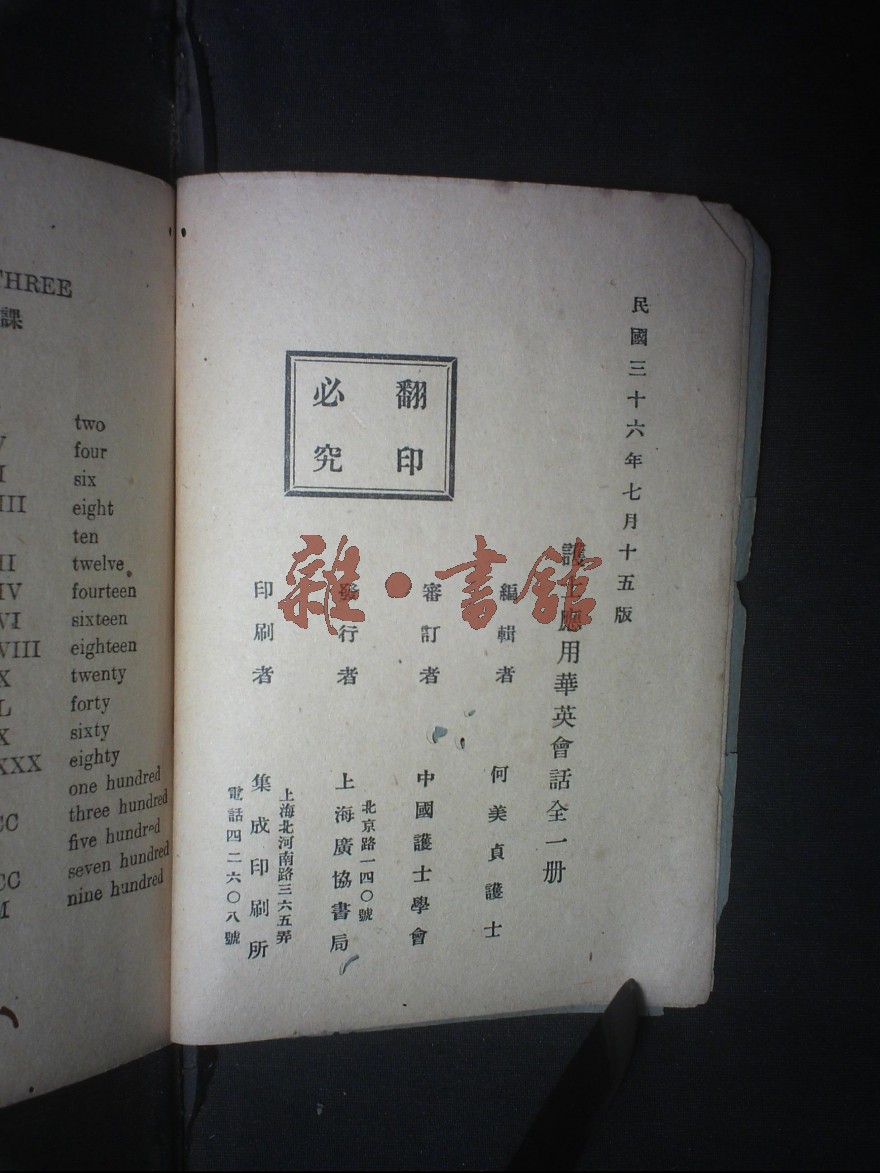 THREE
課
two
V four
I six
III eight
ten
II twelve
IV fourteen
VI sixteen
VIII eighteen
X twenty
L forty
X sixty
XXX eighty
one hundred
CC three hundred
five hundred
CC seven hundred
M nine hundred
民國三十六年七月十五版
護士應用華英會話全一册
編輯者 何美貞護士
審訂者 中國護士學會
發行者 上海廣協書局
北京路一四〇號
印刷者 集成印刷所
上海北河南路三六五弄
電話四二六〇八號
翻印
必究
雜·書館